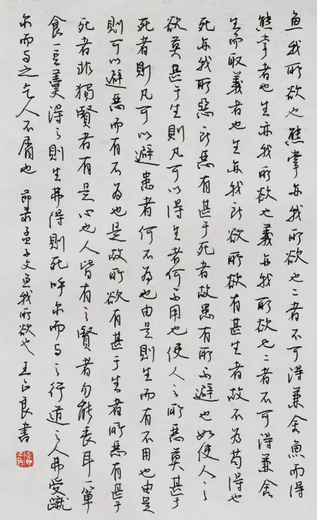 鱼我所欲也熊掌亦我所欲也二者不可得兼舍鱼而得
熊掌者也生亦我所欲也义亦我所欲也二者不可得兼舍
生而取义者也生亦我所欲所欲有甚于生者故不为苟得也
死亦我所恶所恶有甚于死者故患有所不避也如使人之
欲莫甚于生则凡可以得生者何不用也使人之所恶莫甚于
死者则凡可以避患者何不为也由是则生而有不用也由是
则可以避患而有不为也是故所欲有甚于生者所恶有甚于
死者非独贤者有是心也人皆有之贤者勿能丧耳一箪
食一豆羹得之则生弗得则死呼尔而与之行道之人弗受蹴
尔而与之乞人不屑也 节录孟子文鱼我所欲也 王 良书